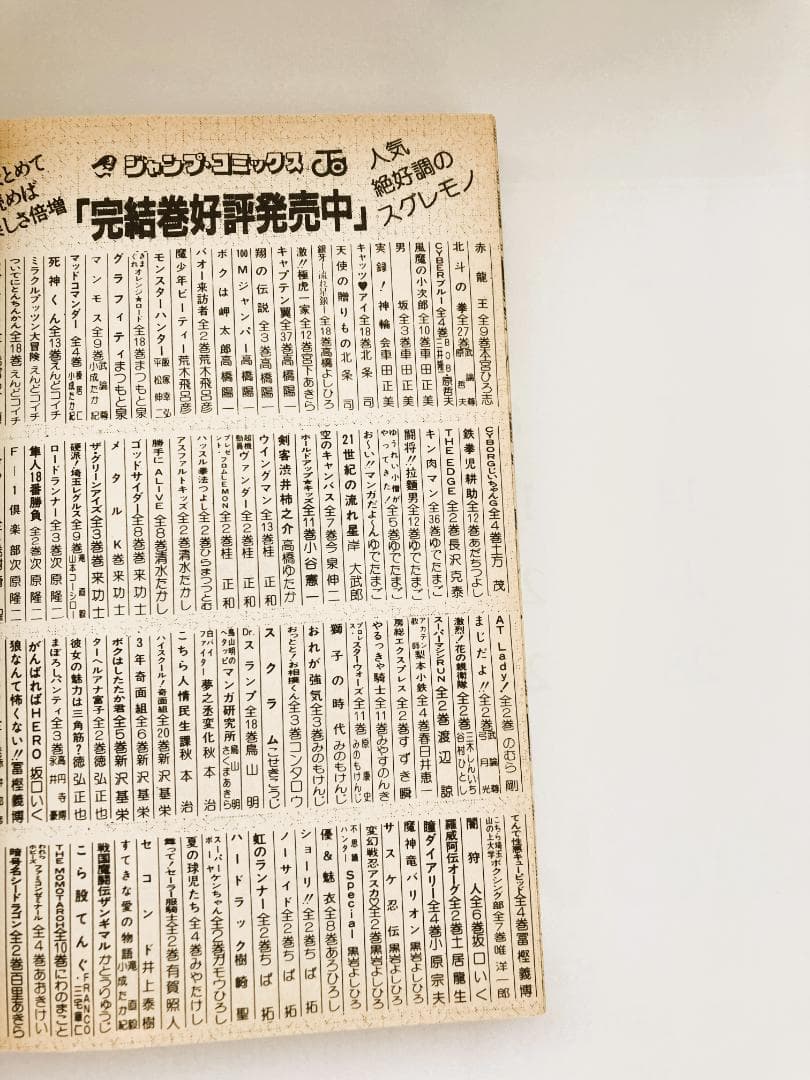 とめて
読めば
しさ倍増
ジャンプ・コミックス
人気
絶好調の
スグレモノ
「完結巻好評発売中」
赤龍王 全9巻 本宮ひろ志
北斗の拳 全27巻 武論尊 原哲夫
CYBERブルー 全4巻 BOB 三井隆一 原哲夫
風魔の小次郎 全10巻 車田正美
男坂 全3巻 車田正美
実録!神輪会 車田正美
キャッツ♥アイ 全18巻 北条司
天使の贈りもの 北条司
銀牙―流れ星銀― 全18巻 高橋よしひろ
激!!極虎一家 全12巻 宮下あきら
キャプテン翼 全37巻 高橋陽一
翔の伝説 全3巻 高橋陽一
100Mジャンパー 高橋陽一
ボクは岬太郎 高橋陽一
バオー来訪者 全2巻 荒木飛呂彦
魔少年ビーティー 荒木飛呂彦
モンスターハンター 飯塚幸弘 平松伸二
きまぐれオレンジ★ロード 全18巻 まつもと泉
グラフィティ まつもと泉
マンモス 全9巻 武論尊 小成たか紀
マッドコマンダー 全4巻 榛居仁 小成たか紀
死神くん 全13巻 えんどコイチ
ミラクルプッツン大冒険 えんどコイチ
ついでにとんちんかん 全18巻 えんどコイチ
CYBORGじいちゃんG 全4巻 土方茂
鉄拳児耕助 全12巻 あだちつよし
THE EDGE 全2巻 長沢克泰
キン肉マン 全36巻 ゆでたまご
闘将!!拉麵男 全12巻 ゆでたまご
ゆうれい小僧がやってきた! 全5巻 ゆでたまご
お〜い!!マンガだよ〜ん ゆでたまご
21世紀の流れ星 岸大武郎
空のキャンバス 全7巻 今泉伸二
ホールドアップ★キッズ 全11巻 小谷憲一
剣客渋井柿之介 高橋ゆたか
ウイングマン 全13巻 桂正和
超機動員ヴァンダー 全2巻 桂正和
プレゼント・フロムLEMON 全2巻 桂正和
ハッスル拳法つよし 全2巻 ひらまつつとむ
アスファルトキッズ 全2巻 清水たかし
勝手にALIVE 全8巻 清水たかし
ゴッドサイダー 全8巻 巻来功士
メタルK 巻来功士
ザ・グリーンアイズ 全3巻 巻来功士
硬派!埼玉レグルス 全9巻 滝直毅 山本コーシロー
ロードランナー 全3巻 次原隆二
隼人18番勝負 全2巻 次原隆二
F―1倶楽部 次原隆二
AT Lady! 全2巻 のむら剛
まじだよ!! 全2巻 武論尊 弓月光
激烈!花の親衛隊 全2巻 三木しんいち 谷村ひとし
スーパーマンRUN 全2巻 渡辺諒
アカテン教師梨本小鉄 全4巻 春日井恵一
房総エクスプレス 全2巻 すすき瞬
やるっきゃ騎士 全11巻 みやすのんき
プロレス・スターウォーズ 全11巻 原康史 みのもけんじ
獅子の時代 みのもけんじ
おれが強気 全3巻 みのもけんじ
おっとと!お相撲くん 全3巻 コンタロウ
スクラム こせきこうじ
Dr.スランプ 全18巻 鳥山明
鳥山明のヘタッピマンガ研究所 鳥山明 さくまあきら
白バイファイター夢之丞変化 秋本治
こちら人情民生課 秋本治
ハイスクール!奇面組 全20巻 新沢基栄
3年奇面組 全6巻 新沢基栄
ボクはしたたか君 全5巻 新沢基栄
ターヘルアナ富子 全2巻 徳弘正也
彼女の魅力は三角筋? 徳弘正也
まぼろしパンティ 全3巻 高円寺博 永井豪
がんばればHERO 坂口いく
狼なんて怖くない!! 冨樫義博
てんで性悪キューピッド 全4巻 冨樫義博
こちら埼玉山の上大学ボクシング部 全7巻 唯洋一郎
闇狩人 全6巻 坂口いく
羅威阿伝オーグ 全2巻 土居龍生
瞳ダイアリー 全4巻 小原宗夫
魔神竜バリオン 黒岩よしひろ
サスケ忍伝 黒岩よしひろ
変幻戦忍アスカ 全2巻 黒岩よしひろ
不思議ハンターSpecial 黒岩よしひろ
優&魅衣 全8巻 あろひろし
ショーリ!! 全2巻 ちば拓
ノーサイド 全2巻 ちば拓
虹のランナー 全2巻 ちば拓
ハードラック 樹崎聖
スーパーケンちゃんボーヤケンちゃん ガモウひろし
夏の球児たち 全4巻 みやたけし
舞って!セーラー服騎士 全2巻 有賀照人
セコンド 井上泰樹
すてきな愛の物語 滝直毅 小成たか紀
戦国魔闘伝ザンギマル かとうりゅうじ
こら殺てんぐ FRANCO 三宅章仁
THE MOMOTAROH 全10巻 にわのまこと
われらホビーズファミコンゼミナール 全4巻 あおきけい
暗号名シードラゴン 全2巻 百里あきら